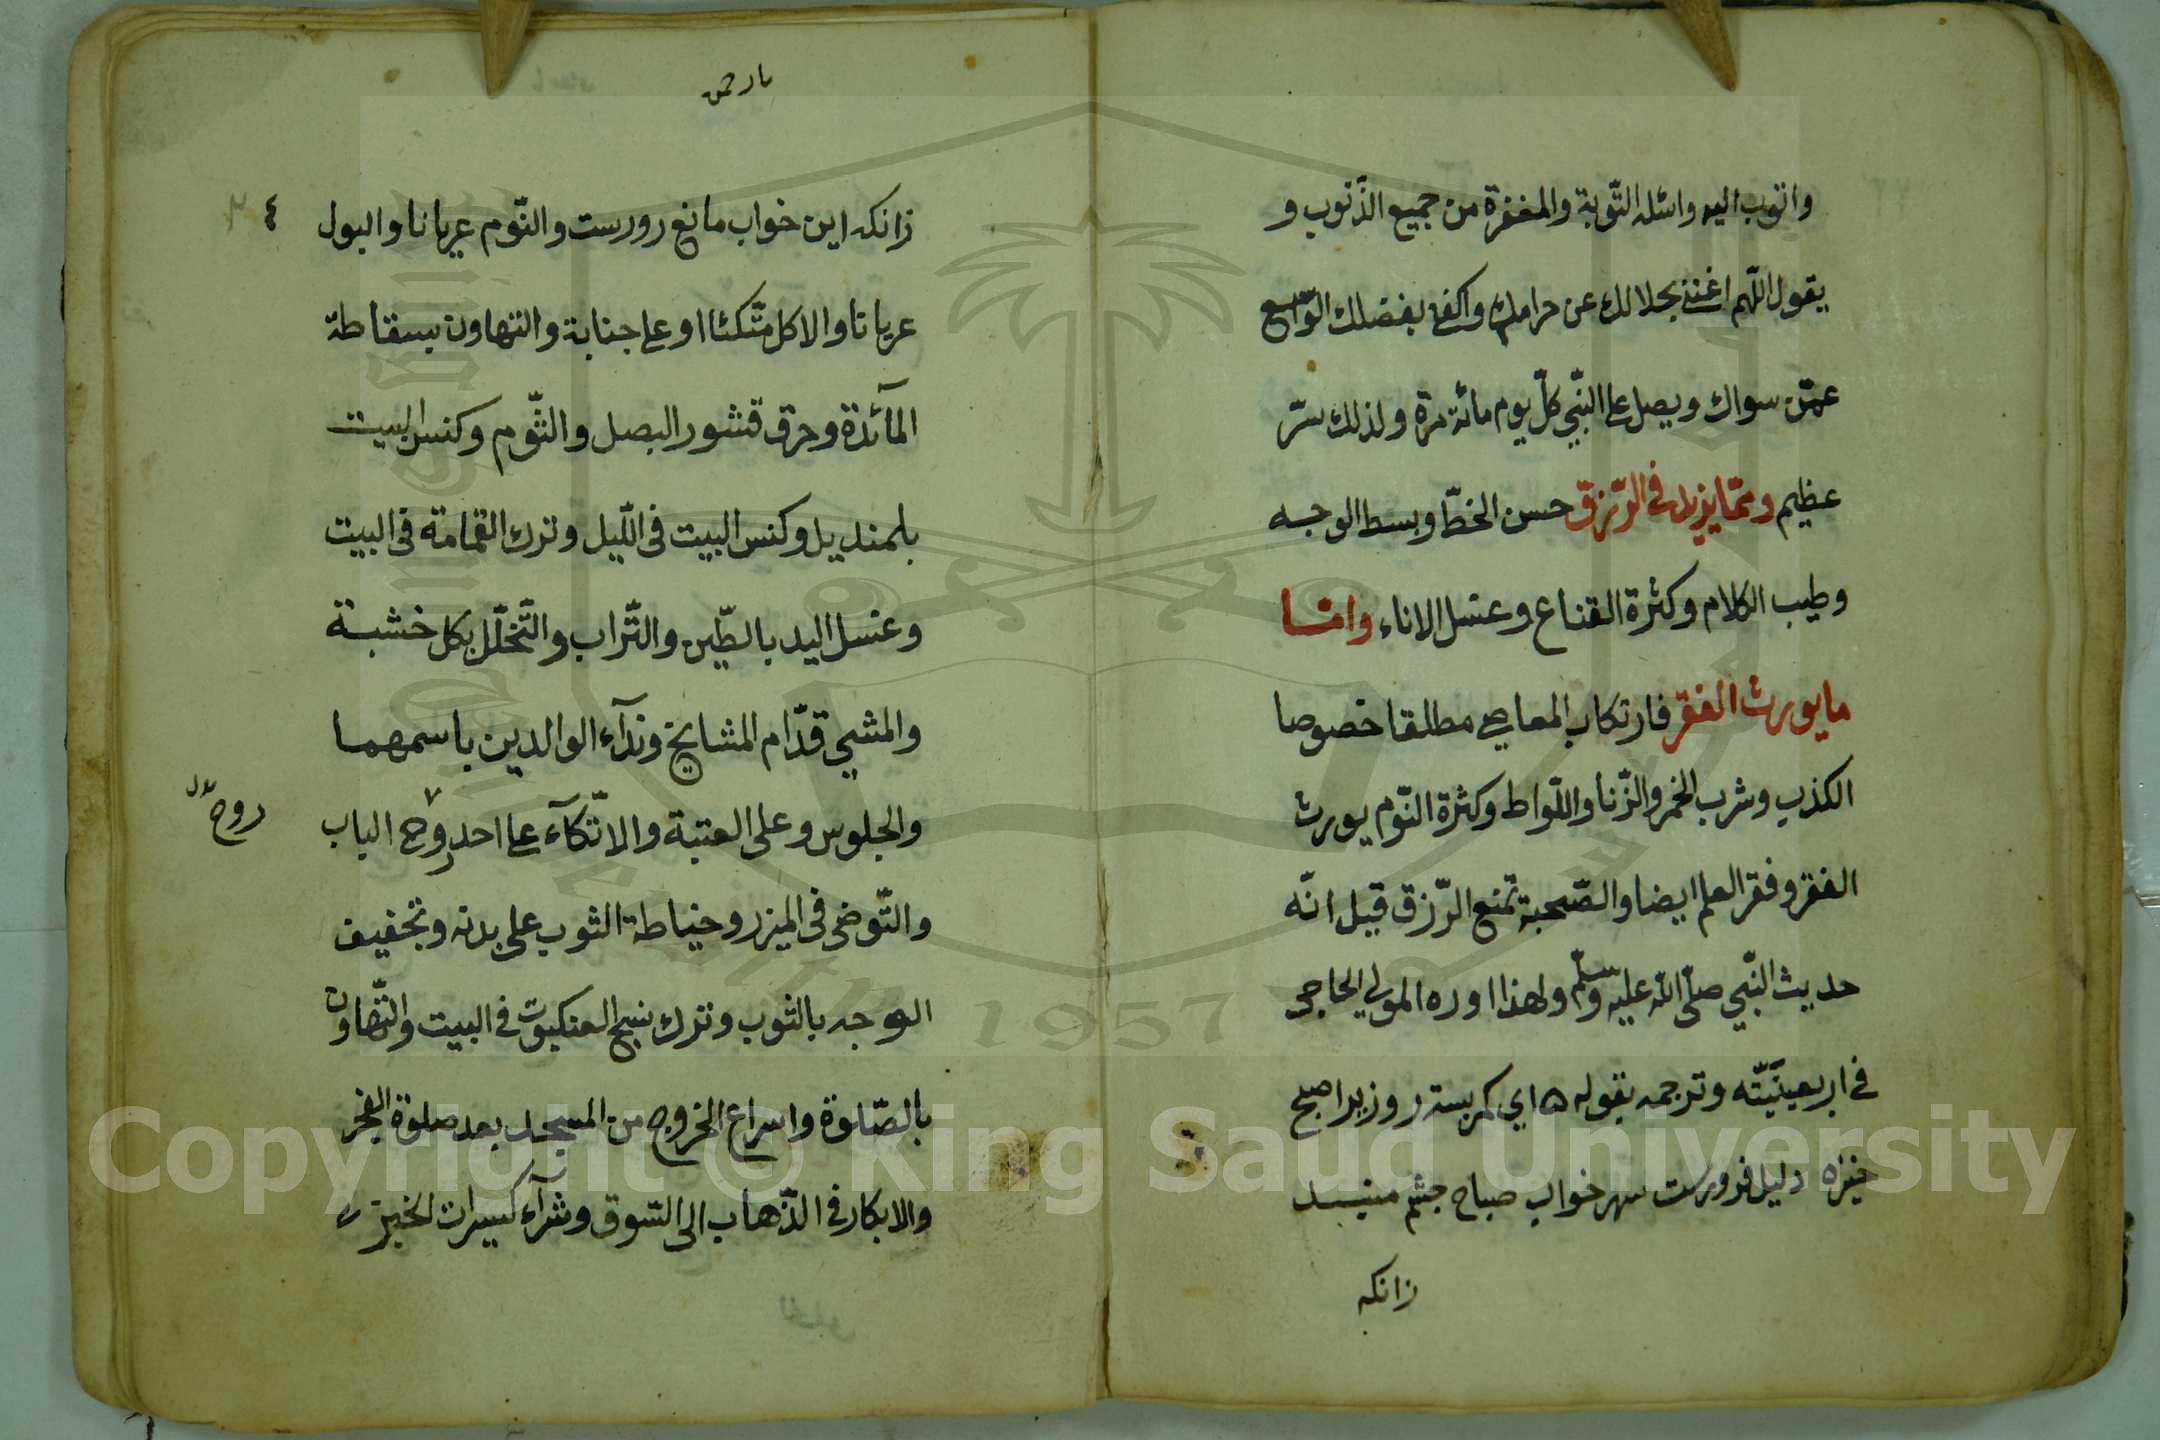 واتوب اليه واسئله التّوبة والمغفرة من جميع الذّنوب و
يقول اللّهم اغنني بحلالك عن حرامك واكفني بفضلك الواسع
عمّن سواك ويصل على النّبي كلّ يوم مائة مرة ولذلك سرّ
عظيم وممّا يزيد في الرّزق حسن الخطّ وبسط الوجه
وطيب الكلام وكثرة القناع وغسل الاناء وامّا
ما يورث الفقر فارتكاب المعاصي مطلقا خصوصا
الكذب وشرب الخمر والزّنا واللّواط وكثرة النّوم يورث
الفقر وفقر العلم ايضا والصّحبة تمنع الرّزق قيل انّه
حديث النّبي صلّى اللّه عليه وسلّم ولهذا اورده المولى الجامي
في اربعينيّته وترجمه بقوله ۵ اي كمر بسته روز برا صبح
خيزه دليل فرورست سهر خواب صباح جشم مبند
زانكه
يا رحمن
زانكه اين خواب مانع رورست والنّوم عريانا والبول
٤
عريانا والاكل متّكئا او على جنابة والتهاون بسقاطة
المآئدة وحرق قشور البصل والثّوم وكنس البيت
بلمنديل وكنس البيت في اللّيل وترك القمامة في البيت
وغسل اليد بالطّين والتّراب والتّخلّل بكل خشبة
والمشي قدّام المشايخ وندآء الوالدين باسمهما
والجلوس وعلى العتبة والاتّكآء على احد روح الباب
روح
والتّوضي في الميزر وخياطة الثوب على بدنه وتجفيف
الوجه بالثوب وترك نسج العنكبوت في البيت والتّهاون
بالصّلوة واسراع الخروج من المسجد بعد صلوة الفجر
والابكار في الذّهاب الى السّوق وشرآء كسيرات الخبز
Copyright © King Saud University
1957